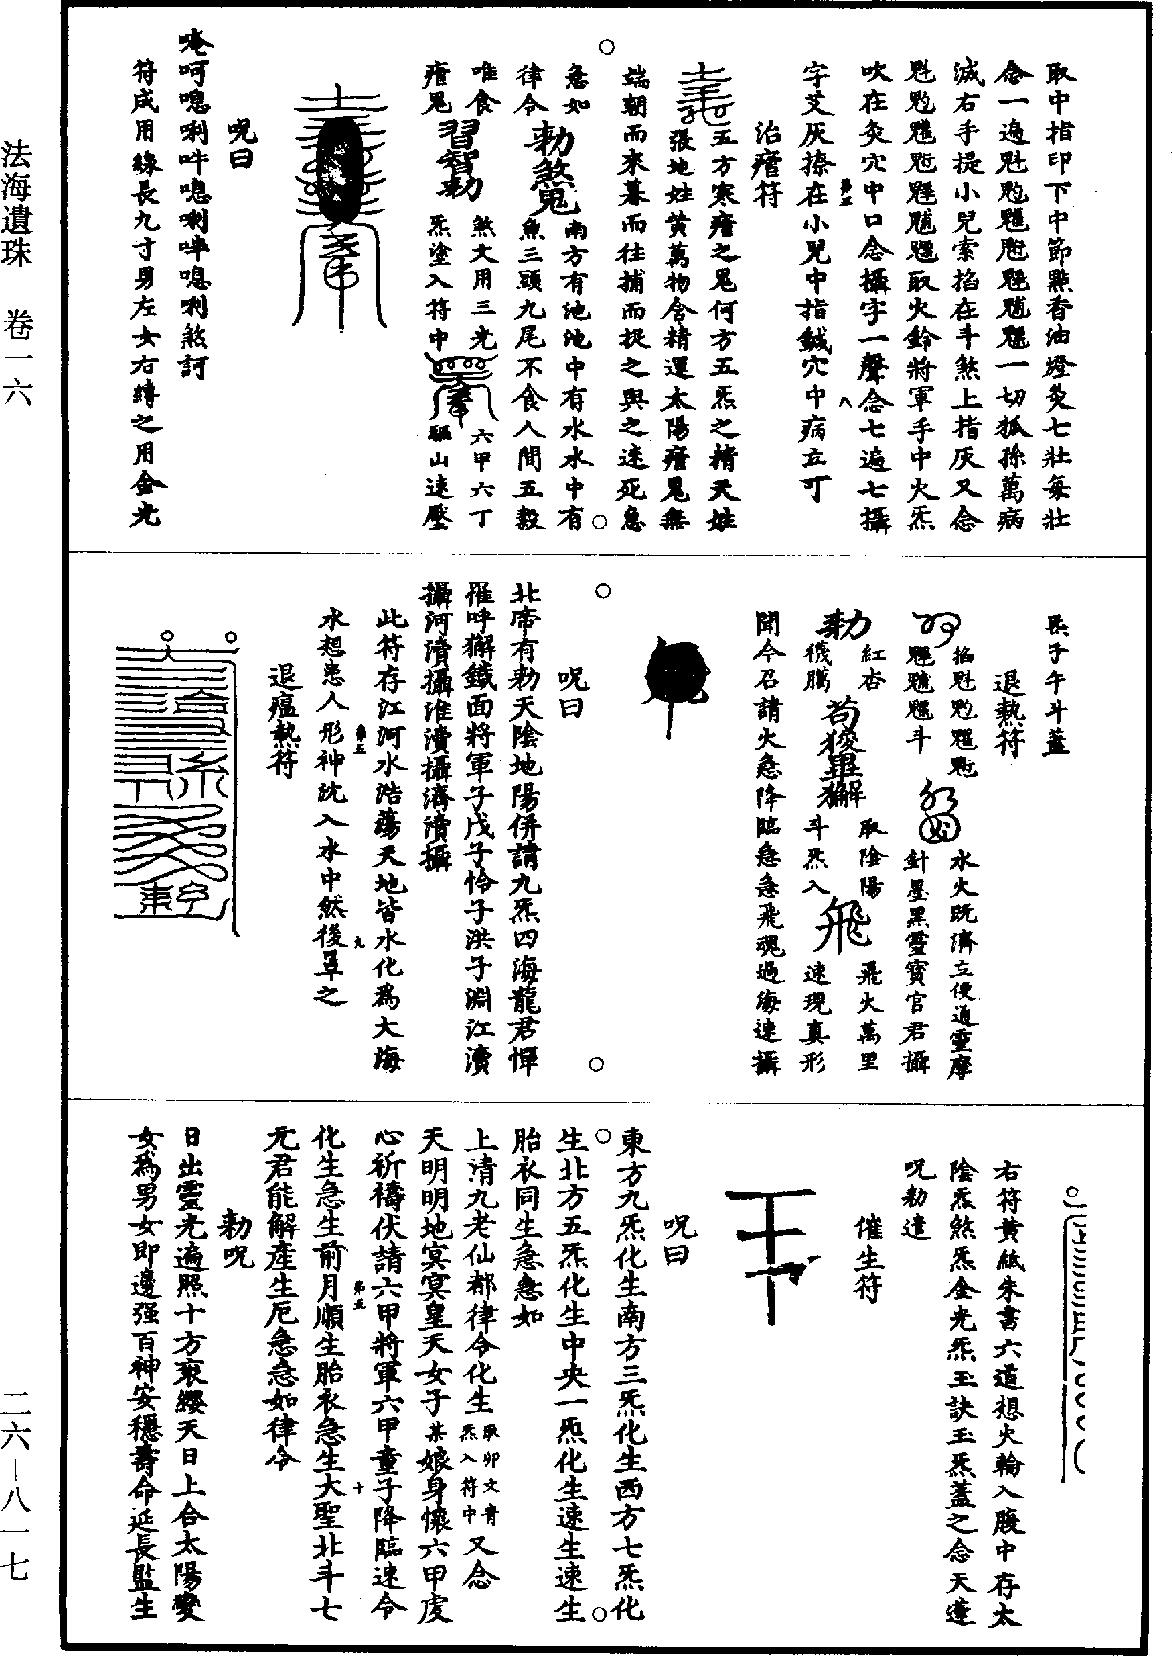 取中指印下中節點香油燈灸七壯每壯
念一遍魁𩲃䰢魓䰡魒魒一切狐孫萬病
滅右手提小兒索掐在斗煞上指灰又念
取火鈴將軍手中火炁
吹在灸穴中口念攝字一聲念七遍七攝
字艾灰捺在小兒中指鍼穴中病立可
治瘧符
五方寒瘧之鬼何方五炁之精天姓
張地姓黃萬物含精還太陽瘧鬼無
端朝而來暮而往捕而捉之與之速死急
急如
律令
勅煞鬼
南方有池池中有水水中有
魚三頭九尾不食人間五穀
唯食
瘧鬼
習智勅
煞文用三光
炁塗入符中
六甲六丁
驅山速壓
呪曰
唵呵𠺗唎吽𠺗唎吽𠺗唎煞訶
符成用線長九寸男左女右縛之用金光
炁子午斗蓋
退熱符
斗
水火既濟立便通靈摩
針墨黑靈寶官君攝
勅
紅杏
機騰
苟狻畢獬
取陰陽
斗炁入
飛
飛火萬里
速現真形
聞今召請火急降臨急急飛魂過海速攝
呪曰
北帝有勅天陰地陽併請九炁四海龍君惲
㠋呼獬鐵面將軍子戊子怜子洪子淵江瀆
攝河瀆攝淮瀆攝濟瀆攝
此符存江河水浩蕩天地皆水化為大海
水想患人形神沈入水中然後罩之
退瘟熱符
右符黃紙朱書六道想火輪入腹中存太
陰炁煞炁金光炁玉訣玉炁蓋之念天蓬
呪勅遣
催生符
呪曰
東方九炁化生南方三炁化生西方七炁化
生北方五炁化生中央一炁化生速生速生
胎衣同生急急如
上清九老仙都律令化生取卯文青炁入符中又念
天明明地冥冥皇天女子某娘身懷六甲虔
心祈禱伏請六甲將軍六甲童子降臨速令
化生急生前月順生胎衣急生大聖北斗七
元君能解產生厄急急如律令
勅呪
日出靈光遍照十方衮纓天日上合太陽變
女為男女即邊强百神安穩壽命延長監生
法海遺珠 卷一六
二六—八一七